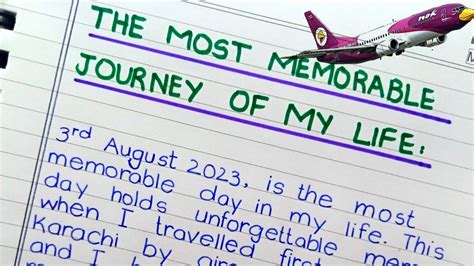 THE MOST MEMORABLE
JOURNEY OF MY LIFE:
nok
3rd August 2023, is the most
memorable day in my life. This
day holds unforgettable
when I travelled
Karachi by
and I